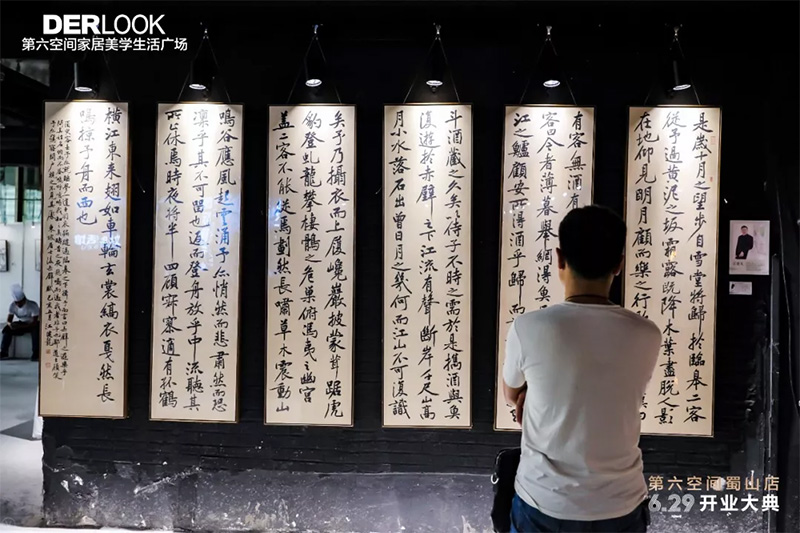 DERLOOK
第六空间家居美学生活广场
是歲十月之望步自雪堂將歸於臨皋二客
從予過黃泥之坂霜露既降木葉盡脫人影
在地仰見明月顧而樂之行
有客無酒有
客曰今者薄暮舉網得魚
江之鱸顧安所得酒乎歸而
斗酒藏之久矣以待子不時之需於是攜酒與魚
復遊於赤壁之下江流有聲斷岸千尺山高
月小水落石出曾日月之幾何而江山不可復識
矣予乃攝衣而上履巉巖披蒙茸踞虎
豹登虬龍攀棲鶻之危巢俯馮夷之幽宮
蓋二客不能從焉劃然長嘯草木震動山
鳴谷應風起雲涌予亦悄然而悲肅然而恐
凜乎其不可留也返而登舟放乎中流聽其
所止休焉時夜將半四顧寂寥適有孤鶴
橫江東來翅如車輪玄裳縞衣戛然長
鳴掠予舟而西也
第六空间蜀山店
6.29 开业大典